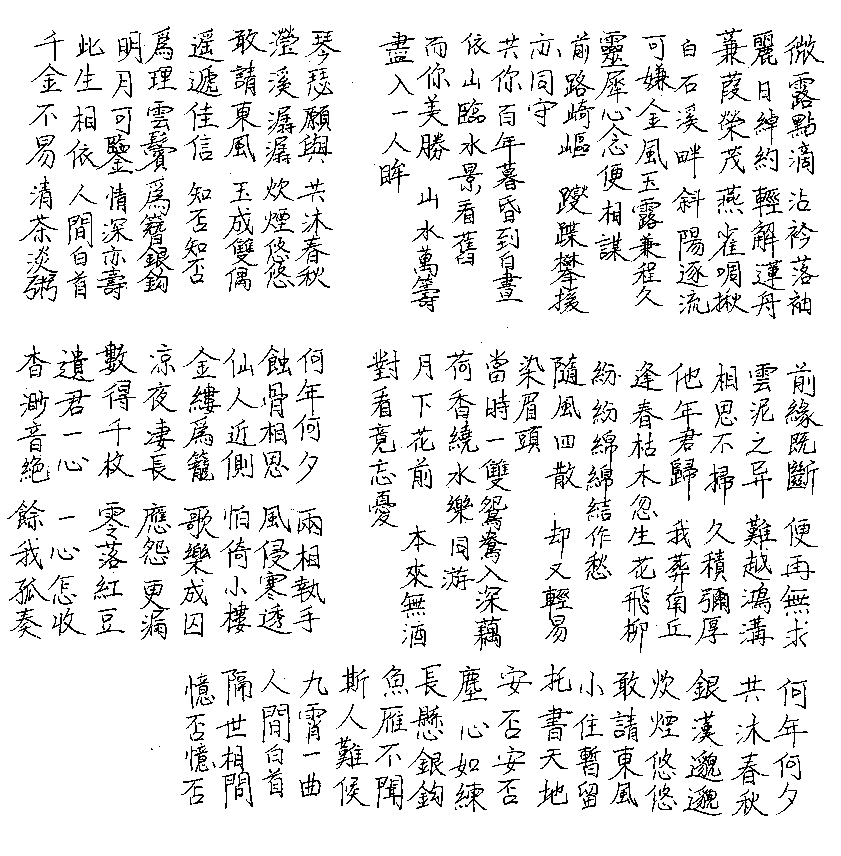 微露點滴沾衿落袖
麗日綽約輕解蓮舟
蒹葭榮茂燕雀啁揪
白石溪畔斜陽逐流
可嫌金風玉露兼程久
靈犀心念便相謀
亦同守
前路崎嶇 躞蹀攀援
共你百年暮昏到白晝
依山臨水景看舊
而你美勝 山水萬籌
盡入一人眸
琴瑟願與 共沐春秋
瀅溪潺潺 炊煙悠悠
敢請東風 玉成雙偶
遥遞佳信 知否知否
為理雲鬢 為簪銀鈎
明月可鑒 情深亦壽
此生相依 人間白首
千金不易 清茶淡粥
前緣既斷 便再無求
雲泥之异 難越鴻溝
相思不掃 久積彌厚
他年君歸 我葬南丘
逢春枯木忽生花飛柳
紛紛綿綿結作愁
隨風四散 却又輕易
染眉頭
當時一雙鴛鴦入深藕
荷香繞水樂同游
月下花前 本來無酒
對看竟忘憂
何年何夕 兩相執手
蝕骨相思 風侵寒透
仙人近側 怕倚小樓
金縷為籠 歌樂成囚
凉夜凄長 應怨更漏
數得千枚 零落紅豆
遺君一心 一心怎收
杳渺音絕 餘我孤奏
何年何夕
共沐春秋
銀漢邈邈
炊煙悠悠
敢請東風
小住暫留
托書天地
安否安否
塵心如練
長懸銀鈎
魚雁不聞
斯人難候
九霄一曲
人間白首
隔世相問
憶否憶否